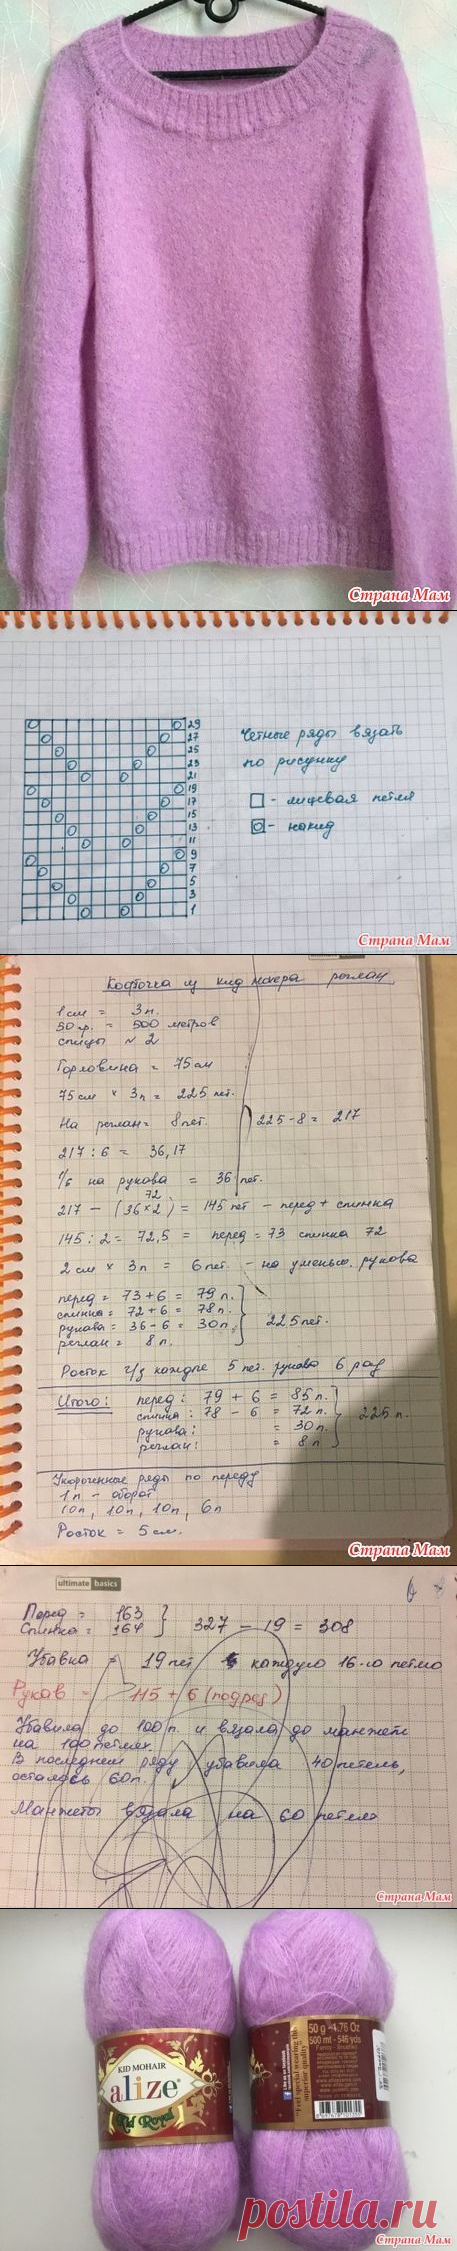 Страна Мам
29
27
25
23
21
19
17
15
13
11
9
7
5
3
1
Четные ряды вязать
по рисунку
- лицевая петля
- накид
Страна Мам
ultimate basics
Кофточка из кид мохера реглан
1 см = 3 п.
50 гр. = 500 метров
спицы № 2
Горловина = 75 см
75 см × 3п = 225 пет.
На реглан = 8 пет.
225 - 8 = 217
217 : 6 = 36,17
1/6 на рукава = 36 пет.
72
217 - (36×2) = 145 пет - перед + спинка
145 : 2 = 72,5 = перед = 73 спинка 72
2 см × 3 п = 6 пет. - на уменьш. рукава
перед = 73 + 6 = 79 п.
спинка = 72 + 6 = 78 п.
рукава = 36 - 6 = 30 п.
реглан = 8 п.
225 пет.
Росток ч/з каждые 5 пет. рукава 6 раз
Итого: перед: 79 + 6 = 85 п.
спинка: 78 - 6 = 72 п.
рукава: = 30 п.
реглан: = 8 п
225 п.
Укороченные ряды по переду
1 п - оборот
10п, 10п, 10п, 6п
Росток = 5 см.
Страна Мам
ultimate basics
Перед = 163
Спинка = 164
327 - 19 = 308
Убавка = 19 пет каждую 16-ю петлю
Рукав = 115 + 6 (подрез)
Убавила до 100 п. и вязала до манжеты
на 100 петлях.
В последнем ряду убавила 40 петель,
осталось 60 п.
Манжеты вязала на 60 петлях
Страна Мам
KID MOHAIR
alize
Kid Royal
50 g - 1.76 Oz
500 mt - 546 yds
superior quality
postila.ru
Страна Мам